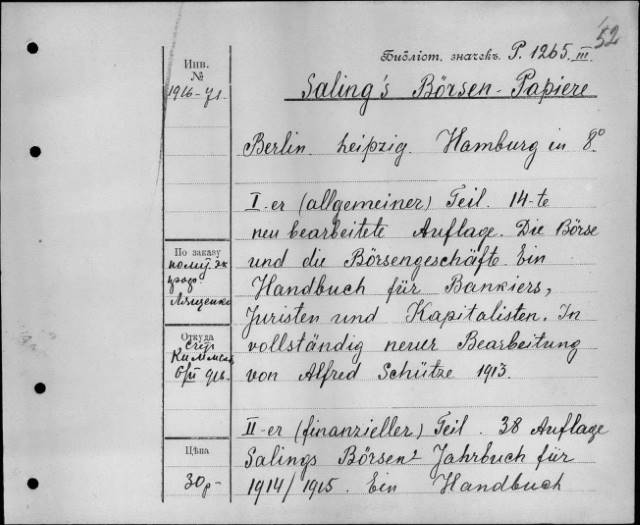 52
Библіот. значекъ P. 1265 III
Инв.
№
1916-71.
Saling's Börsen-Papiere
Berlin. Leipzig. Hamburg in 8°.
I-er (allgemeiner) Teil. 14-te
neu bearbeitete Auflage. Die Börse
По заказу
und die Börsengeschäfte. Ein
проф.
Handbuch für Bankiers,
Лященко
Juristen und Kapitalisten. In
Откуда
vollständig neuer Bearbeitung
von Alfred Schütze 1913.
II-er (finanzieller) Teil. 38 Auflage
Цѣна
Salings Börsen= Jahrbuch für
30р-
1914/1915. Ein Handbuch